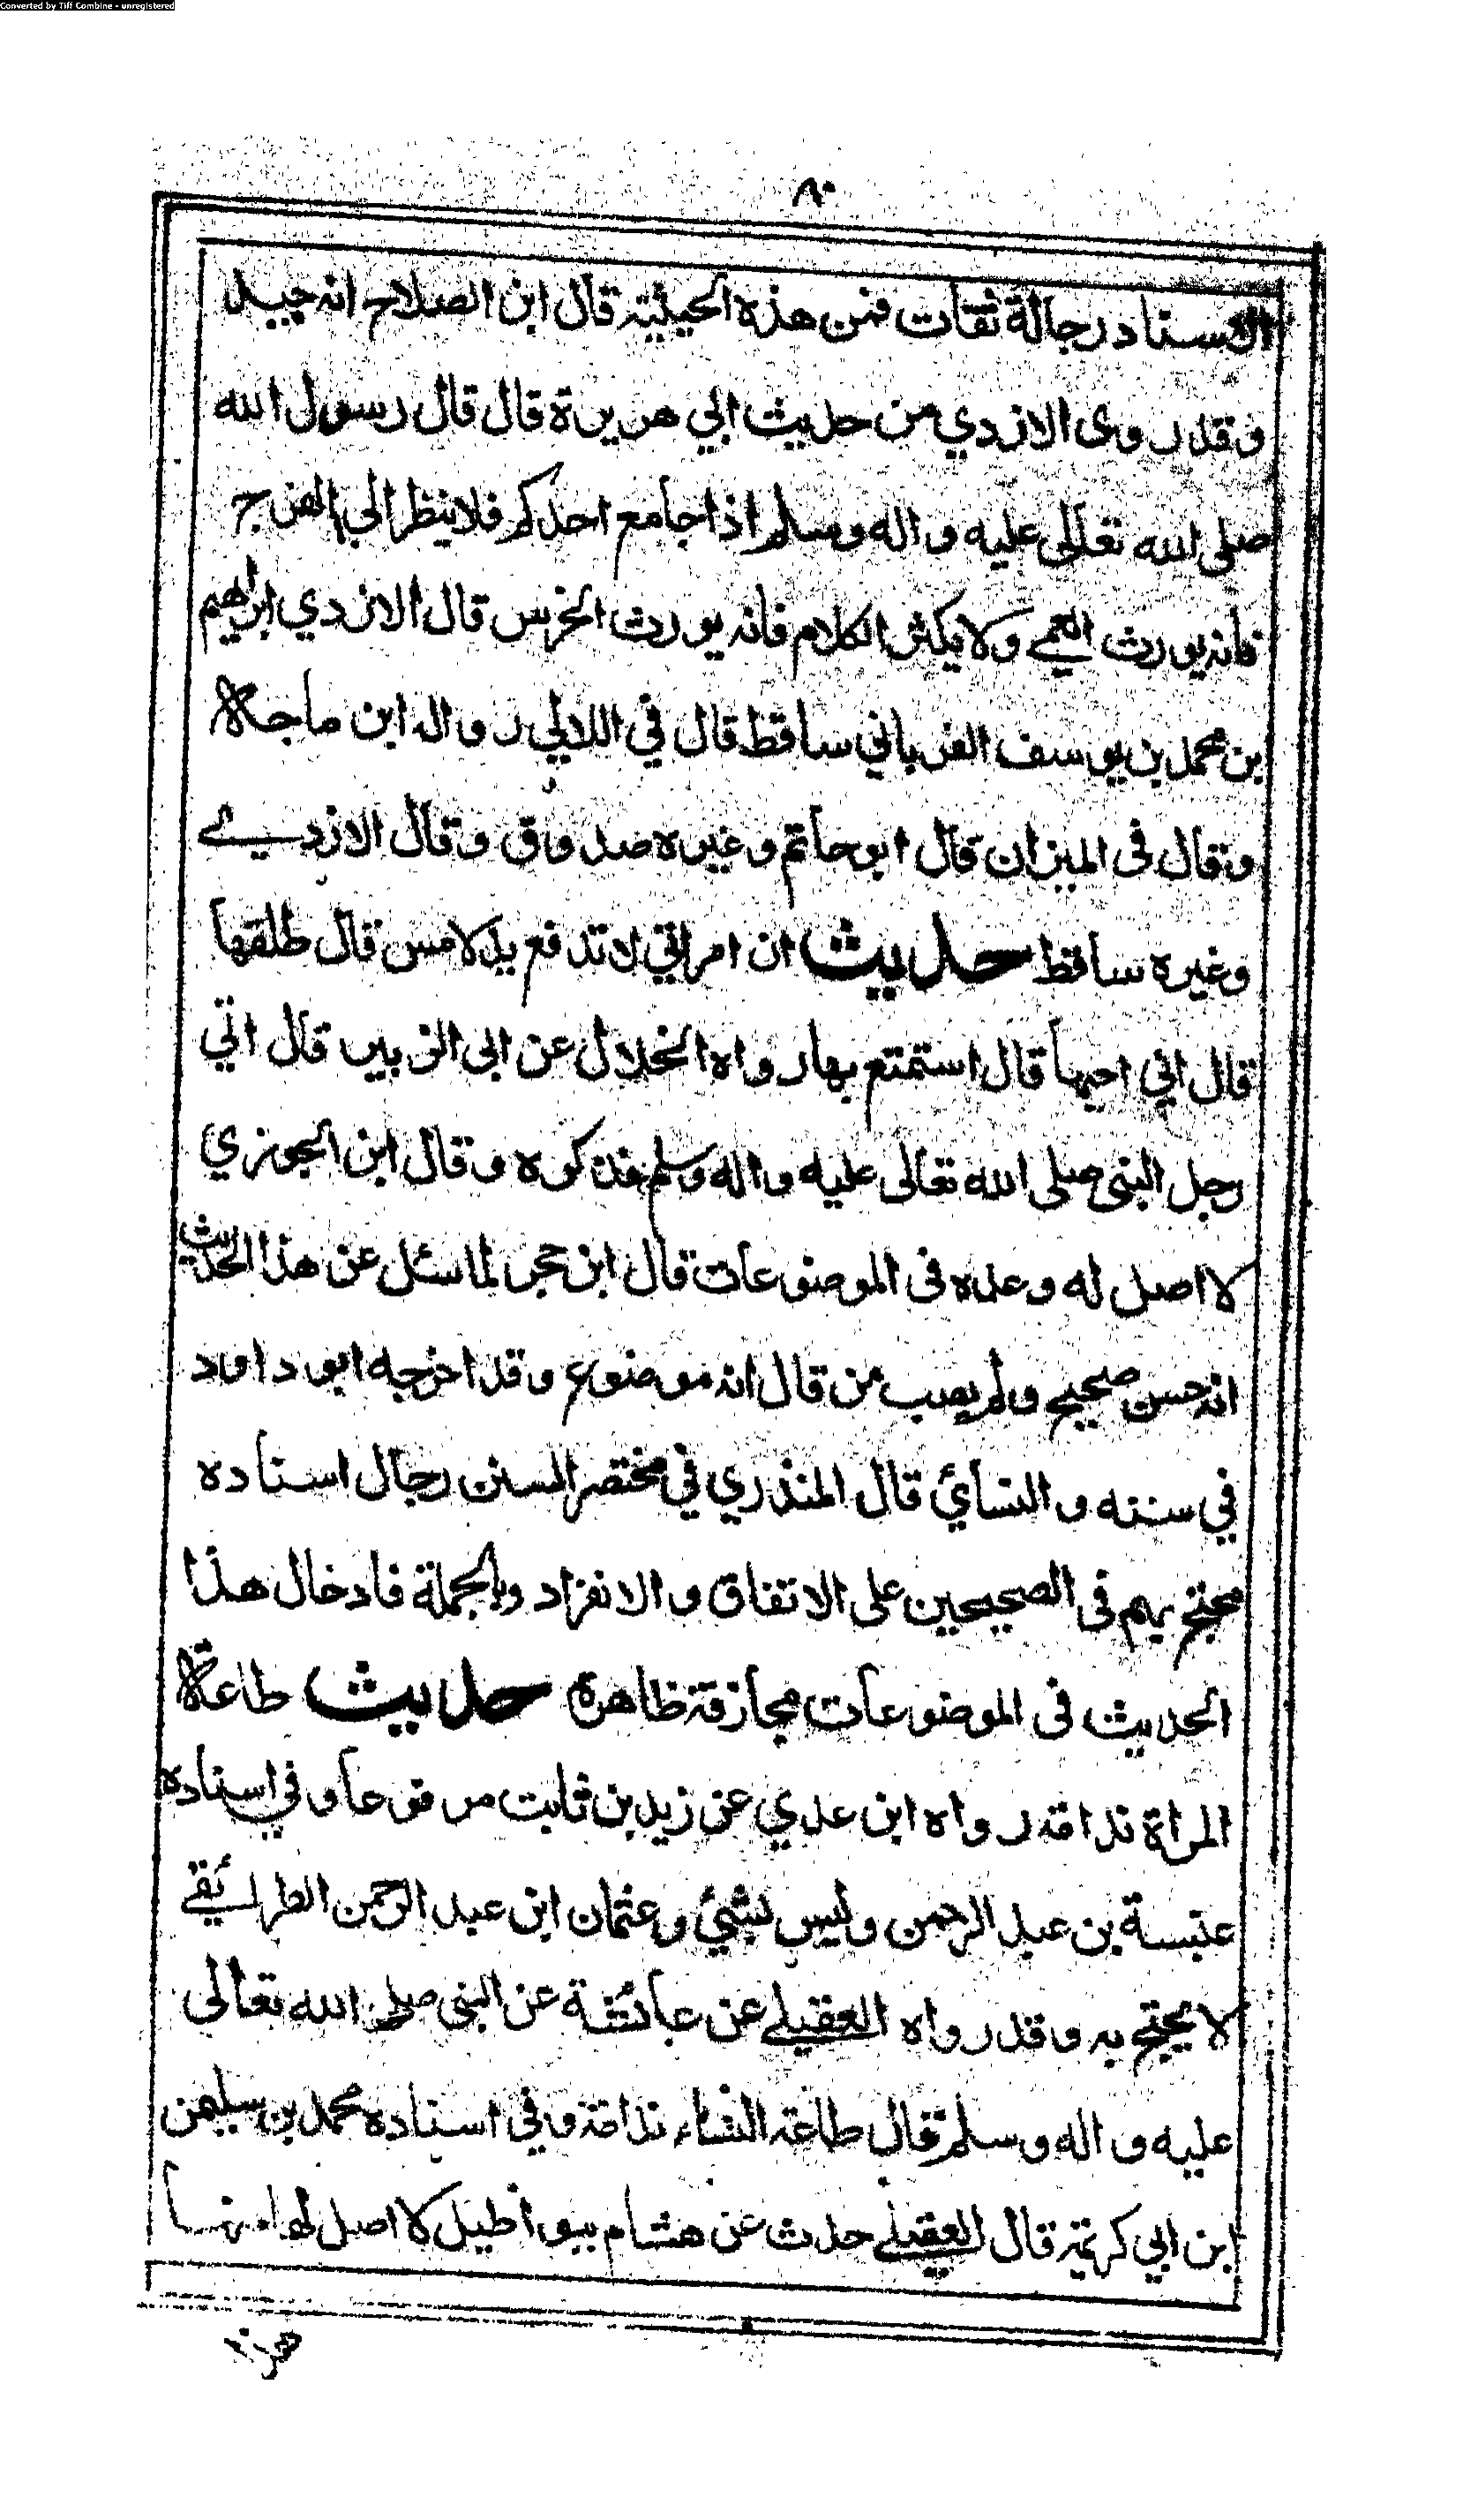 Converted by Tiff Combine - unregistered
٨٠
الاسناد رجالة ثقات فمن هذه الحيثية قال ابن الصلاح انه جيد
وقد روى الازدي من حديث ابي هريرة قال قال رسول الله
صلى الله تعالى عليه واله وسلم اذا جامع احدكم فلا ينظر الى الفرج
فانه يورث العمى ولا يكثر الكلام فانه يورث الخرس قال الازدي ابراهيم
بن محمد بن يوسف الفريابي ساقط قال في اللالي روى له ابن ماجه
وقال فى الميزان قال ابو حاتم وغيره صدوق وقال الازدي
وغيره ساقط حديث ان امراتي لا تدفع يد لامس قال طلقها
قال اني احبها قال استمتع بها رواه الخلال عن ابى الزبير قال اتي
رجل النبى صلى الله تعالى عليه واله وسلم فذكره وقال ابن الجوزي
لا اصل له وعده فى الموضوعات قال ابن حجر لما سئل عن هذا الحديث
انه حسن صحيح ولم يصب من قال انه موضوع وقد اخرجه ابو داود
في سننه والنسائي قال المنذري في مختصر السنن رجال اسناده
محتج بهم فى الصحيحين على الاتفاق والانفراد وبالجملة فادخال هذا
الحديث فى الموضوعات مجازفة ظاهرة حديث طاعة
المراة ندامة رواه ابن عدي عن زيد بن ثابت مرفوعا وفي اسناده
عنبسة بن عبد الرحمن وليس بشيء وعثمان ابن عبد الرحمن الطرائقي
لا يحتج به وقد رواه العقيلي عن عائشة عن النبى صلى الله تعالى
عليه واله وسلم قال طاعة النساء ندامة وفي اسناده محمد بن سليمن
ابن ابي كريمة قال العقيلي حدث عن هشام ببواطيل لا اصل لها منها
هذا